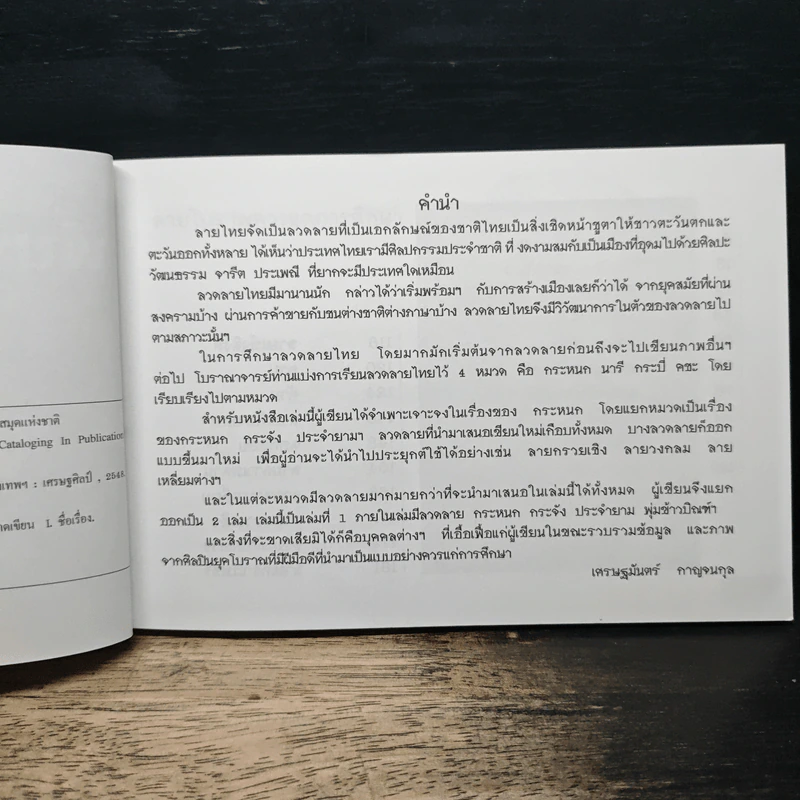 สมุดแห่งชาติ
Cataloging In Publication
เทพฯ : เศรษฐศิลป์ , 2548.
ดเขียน I. ชื่อเรื่อง.
คำนำ
ลายไทยจัดเป็นลวดลายที่เป็นเอกลักษณ์ของชาติไทยเป็นสิ่งเชิดหน้าชูตาให้ชาวตะวันตกและ
ตะวันออกทั้งหลาย ได้เห็นว่าประเทศไทยเรามีศิลปกรรมประจำชาติ ที่ งดงามสมกับเป็นเมืองที่อุดมไปด้วยศิลปะ
วัฒนธรรม จารีต ประเพณี ที่ยากจะมีประเทศใดเหมือน
ลวดลายไทยมีมานานนัก กล่าวได้ว่าเริ่มพร้อมๆ กับการสร้างเมืองเลยก็ว่าได้ จากยุคสมัยที่ผ่าน
สงครามบ้าง ผ่านการค้าขายกับชนต่างชาติต่างภาษาบ้าง ลวดลายไทยจึงมีวิวัฒนาการในตัวของลวดลายไป
ตามสภาวะนั้นๆ
ในการศึกษาลวดลายไทย โดยมากมักเริ่มต้นจากลวดลายก่อนถึงจะไปเขียนภาพอื่นๆ
ต่อไป โบราณาจารย์ท่านแบ่งการเรียนลวดลายไทยไว้ 4 หมวด คือ กระหนก นารี กระบี่ คชะ โดย
เรียบเรียงไปตามหมวด
สำหรับหนังสือเล่มนี้ผู้เขียนได้จำเพาะเจาะจงในเรื่องของ กระหนก โดยแยกหมวดเป็นเรื่อง
ของกระหนก กระจัง ประจำยามๆ ลวดลายที่นำมาเสนอเขียนใหม่เกือบทั้งหมด บางลวดลายก็ออก
แบบขึ้นมาใหม่ เพื่อผู้อ่านจะได้นำไปประยุกต์ใช้ได้อย่างเช่น ลายกรวยเชิง ลายวงกลม ลาย
เหลี่ยมต่างๆ
และในแต่ละหมวดมีลวดลายมากมายกว่าที่จะนำมาเสนอในเล่มนี้ได้ทั้งหมด ผู้เขียนจึงแยก
ออกเป็น 2 เล่ม เล่มนี้เป็นเล่มที่ 1 ภายในเล่มมีลวดลาย กระหนก กระจัง ประจำยาม พุ่มข้าวบิณฑ์ๆ
และสิ่งที่จะขาดเสียมิได้ก็คือบุคคลต่างๆ ที่เอื้อเฟื้อแก่ผู้เขียนในขณะรวบรวมข้อมูล และภาพ
จากศิลปินยุคโบราณที่มีฝีมือดีที่นำมาเป็นแบบอย่างควรแก่การศึกษา
เศรษฐมันตร์ กาญจนกุล